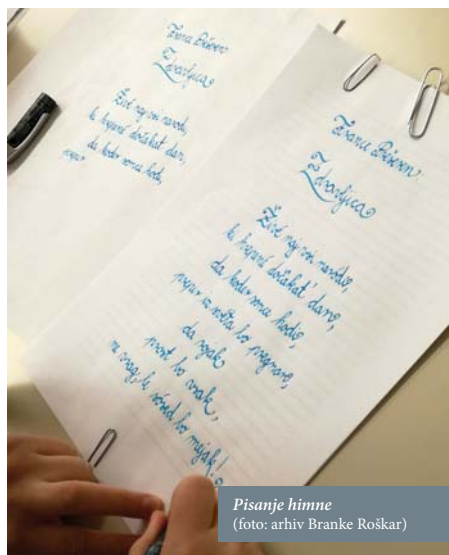 France Prešeren
Zdravljica
Živé naj vsi narodi,
ki hrepené dočakat' dan,
da koder sonce hodi,
prepir
France Prešeren
Zdravljica
Živé naj vsi narodi,
ki hrepené dočakat' dan,
da koder sonce hodi,
prepir iz svéta bo pregnan,
da rojak
prost bo vsak,
ne vrag, le sosed bo mejak!
Pisanje himne
(foto: arhiv Branke Roškar)